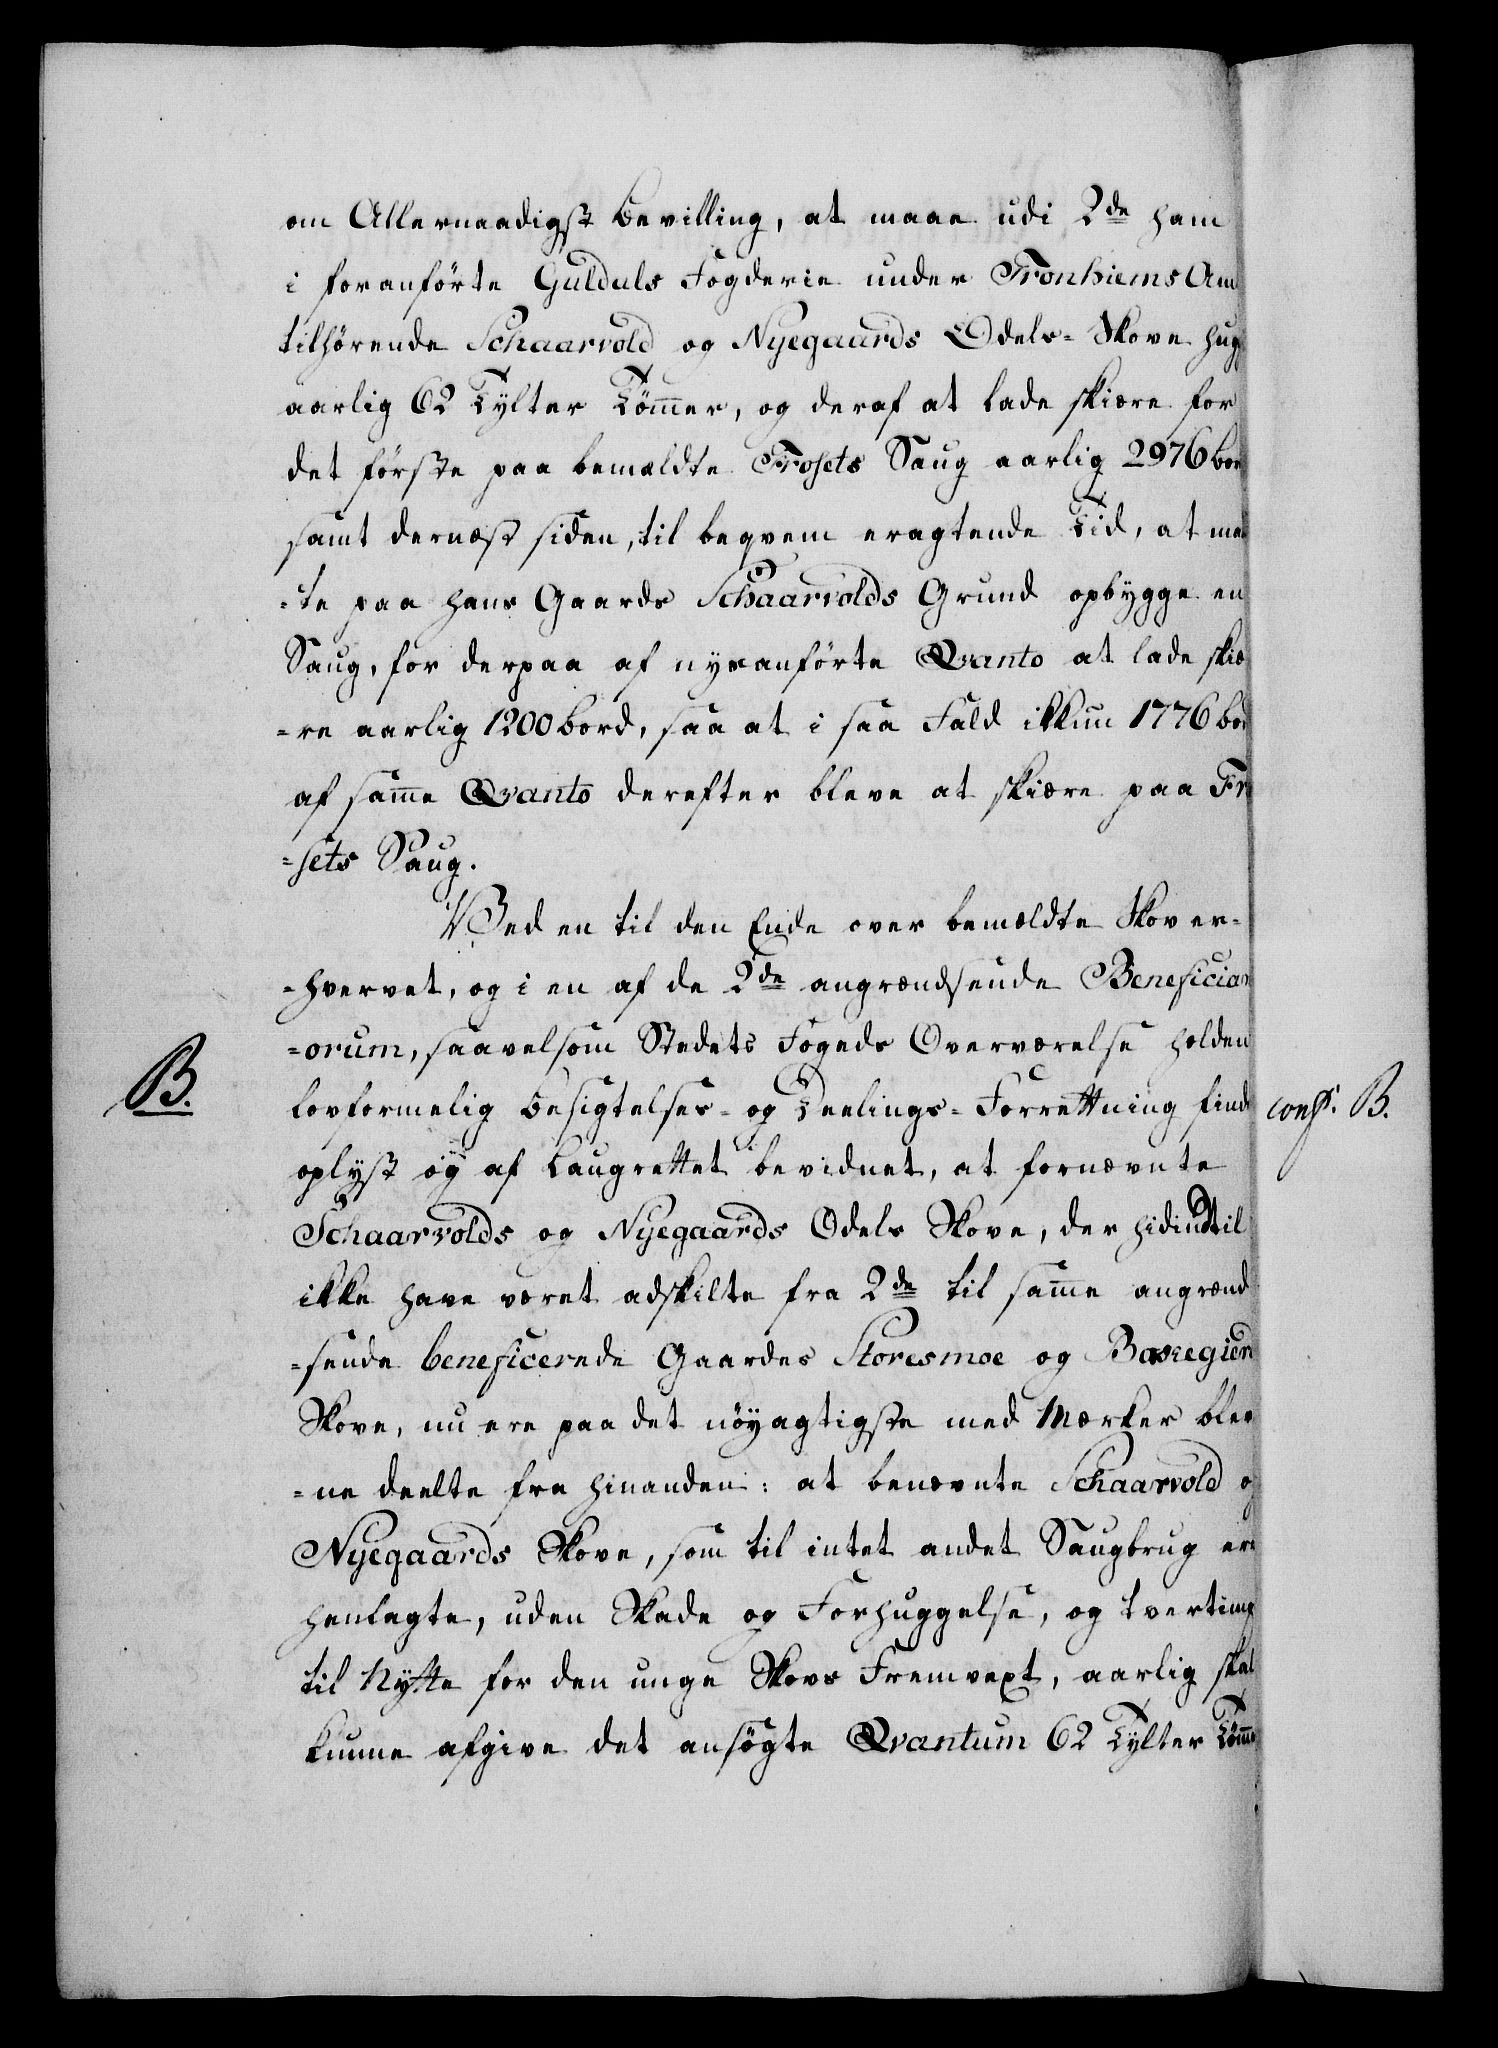 om Allernaadigst bevilling, at maae udi 2de ham
i foranförte Guldals Fogderie under Tronhiems Am
tilhörende Schaarvold og Nyegaards Odels- Skove hug
aarlig 62 Tylter Tömer, og deraf at lade skiære for
det förste paa bemældte Frosets Saug aarlig 2976 bor
samt dernæst siden, til beqvem eragtende Tid, at maa
-te paa hans Gaards Schaarvolds Grund opbygge en
Saug, for derpaa af nysanförte Qvanto at lade skiæ
-re aarlig 1200 bord, saa at i saa Fald ikkun 1776 bor
af same Qvanto derefter bleve at skiære paa Fr
-sets Saug.
Ved en til den Ende over bemældte Skov er-
-hvervet, og i en af de 2de angrændsende Beneficiar
-orum, saavelsom Stedets Fogeds Overværelse holden
B.
lovformelig besigtelses- og Deelings- Forrettning finde
conf. B.
oplyst og af Laugrettet bevidnet, at fornævnte
Schaarvolds og Nyegaards Odels Skove, der hidindtil
ikke have været adskilte fra 2de til same angrænd
-sende beneficerede Gaardes Storesmoe og Baregierd
Skove, nu ere paa det nöyagtigste med Mærker blev
-ne deelte fra hinanden: at benævnte Schaarvold og
Nyegaards Skove, som til intet andet Saugbrug ere
henlagte, uden Skade og Forhuggelse, og tvertimod
til Nytte for den unge Skovs Fremvext, aarlig skal
kunne afgive det ansögte Qvantum 62 Tylter Töme